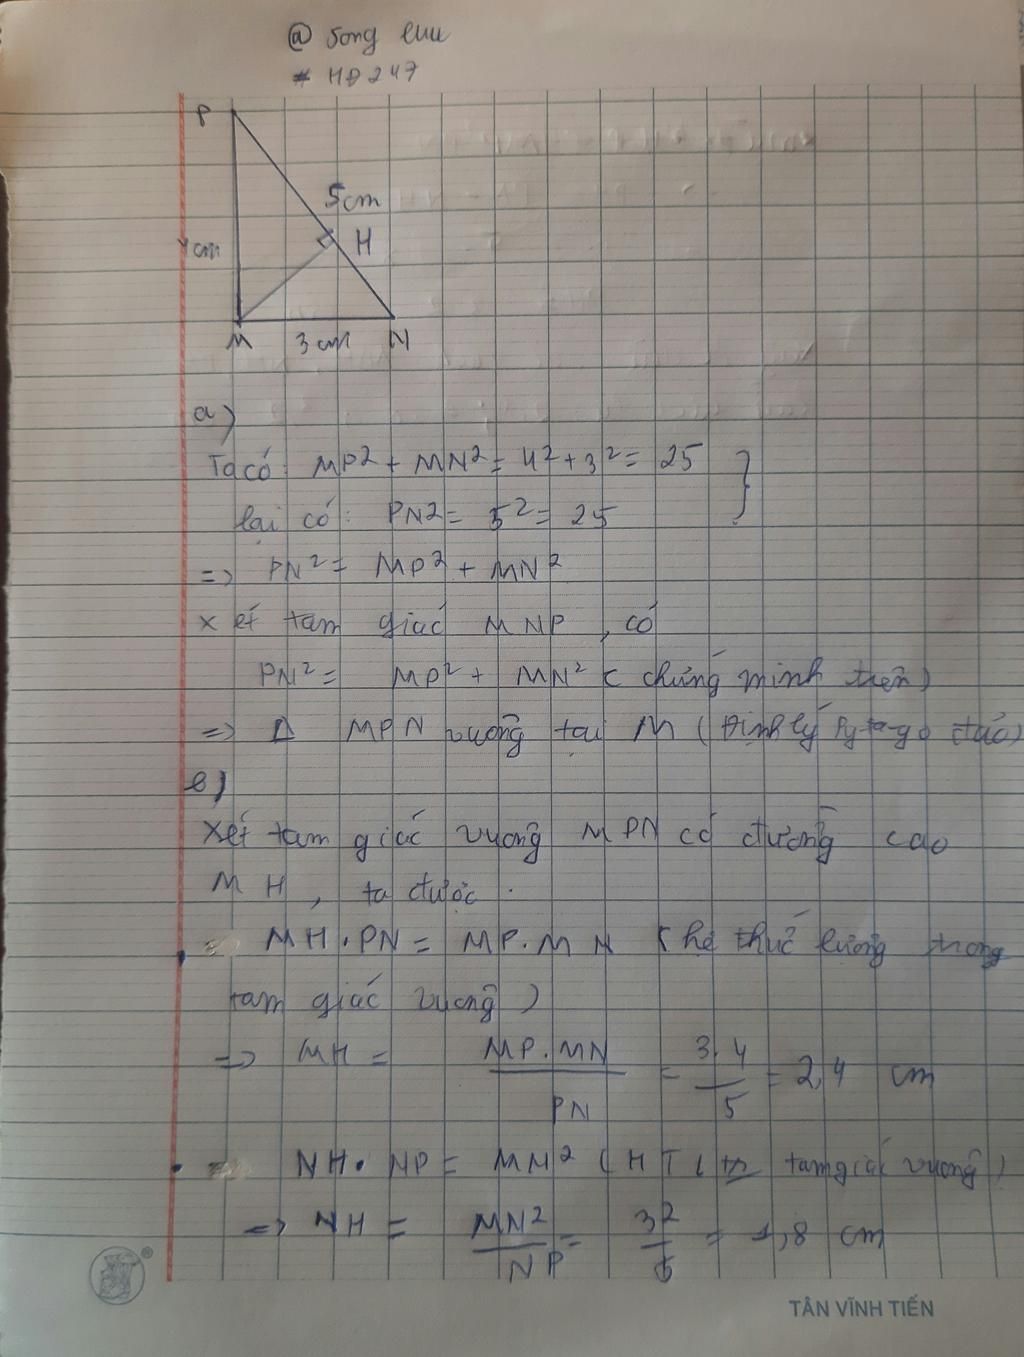 @ song luu
# HD247
P
5cm
4cm
H
M 3cm N
a)
Ta có: MP² + MN² = 4² + 3² = 25
lại có: PN² = 5² = 25
=> PN² = MP² + MN²
Xét tam giác MNP, có
PN² = MP² + MN² (chứng minh trên)
=> Δ MPN vuông tại M (Định lý Py-ta-go đảo)
b)
Xét tam giác vuông MPN có đường cao
MH, ta được.
MH.PN = MP.MN (hệ thức lượng trong
tam giác vuông)
=> MH = MP.MN / PN = 3.4 / 5 = 2,4 cm
NH.NP = MN² (HTL tr tam giác vuông)
=> NH = MN² / NP = 3² / 5 = 1,8 cm
®
TÂN VĨNH TIẾN